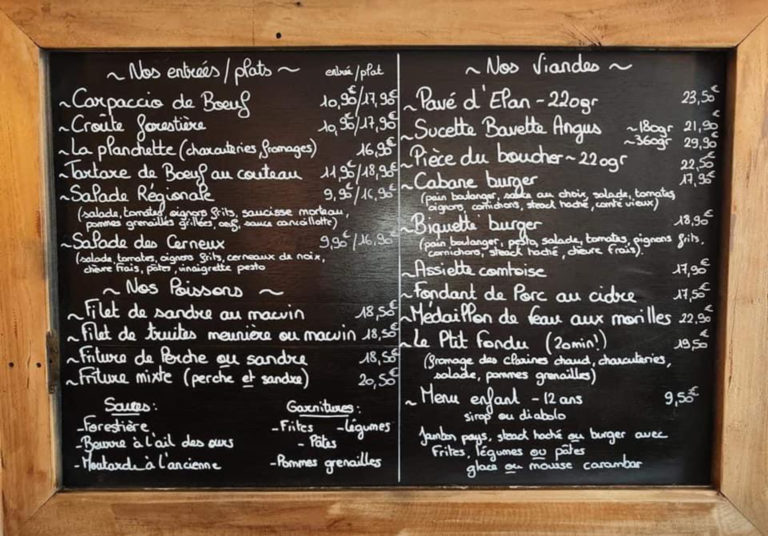 ~ Nos entrées / plats ~ entrée/plat
~ Carpaccio de Boeuf 10,90€/17,90€
~ Croute forestière 10,90€/17,90€
~ La planchette (charcuteries, fromages) 16,90€
~ Tartare de Boeuf au couteau 11,90€/18,90€
~ Salade Régionale 9,90€/16,90€
(salade, tomates, oignons frits, saucisse morteau,
pommes grenailles grillées, oeuf, sauce cancoillotte)
~ Salade des Cerneux 9,90€/16,90€
(salade, tomates, oignons frits, cerneaux de noix,
chèvre frais, pâtes, vinaigrette pesto
~ Nos Poissons ~
~ Filet de sandre au macvin 18,50€
~ Filet de truites meunière ou macvin 18,50€
~ Friture de Perche ou sandre 18,50€
~ Friture mixte (perche et sandre) 20,50€
Sauces:
- Forestière
- Beurre à l'ail des ours
- Moutarde à l'ancienne
Garnitures:
- Frites - légumes
- Pâtes
- Pommes grenailles
~ Nos Viandes ~
~ Pavé d'Elan - 220gr 23,50€
~ Sucette Bavette Angus ~ 180gr 21,90€
~ 360gr 29,90€
~ Pièce du boucher ~ 220gr 22,50€
~ Cabane burger 17,90€
(pain boulanger, sauce au choix, salade, tomates,
oignons, cornichons, steack haché, comté vieux)
~ Biquette burger 18,90€
(pain boulanger, pesto, salade, tomates, oignons frits,
cornichons, steack haché, chèvre frais).
~ Assiette comtoise 17,90€
~ Fondant de Porc au cidre 17,50€
~ Médaillon de Veau aux morilles 22,90€
~ Le Ptit Fondu (20min!) 19,50€
(fromage des claines chaud, charcuteries,
salade, pommes grenailles)
~ Menu enfant - 12 ans 9,50€
sirop ou diabolo
Jambon pays, steack haché ou burger avec
Frites, légumes ou pâtes
glace ou mousse carambar